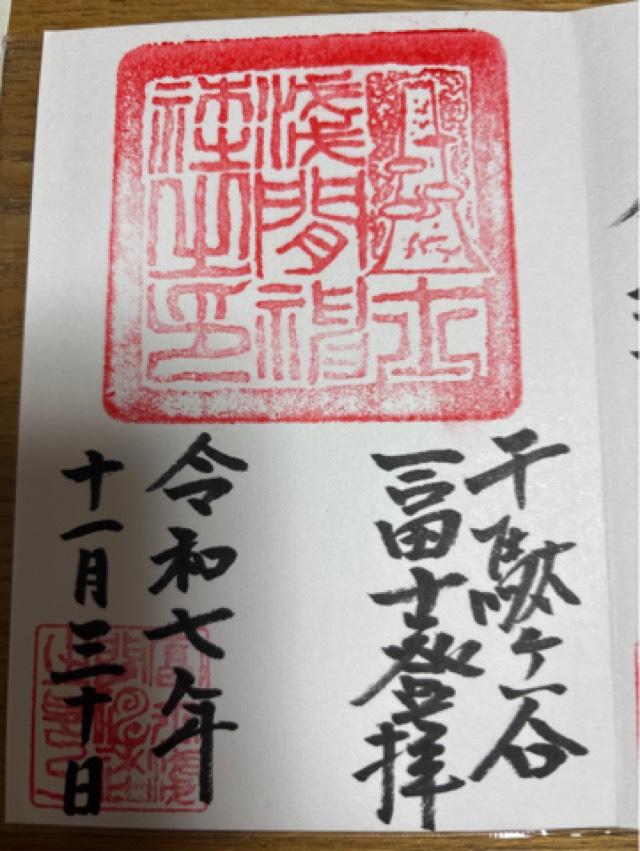 富士
淺間神
社之印
千駄ヶ谷
冨士登拝
令和七年
十一月三十日